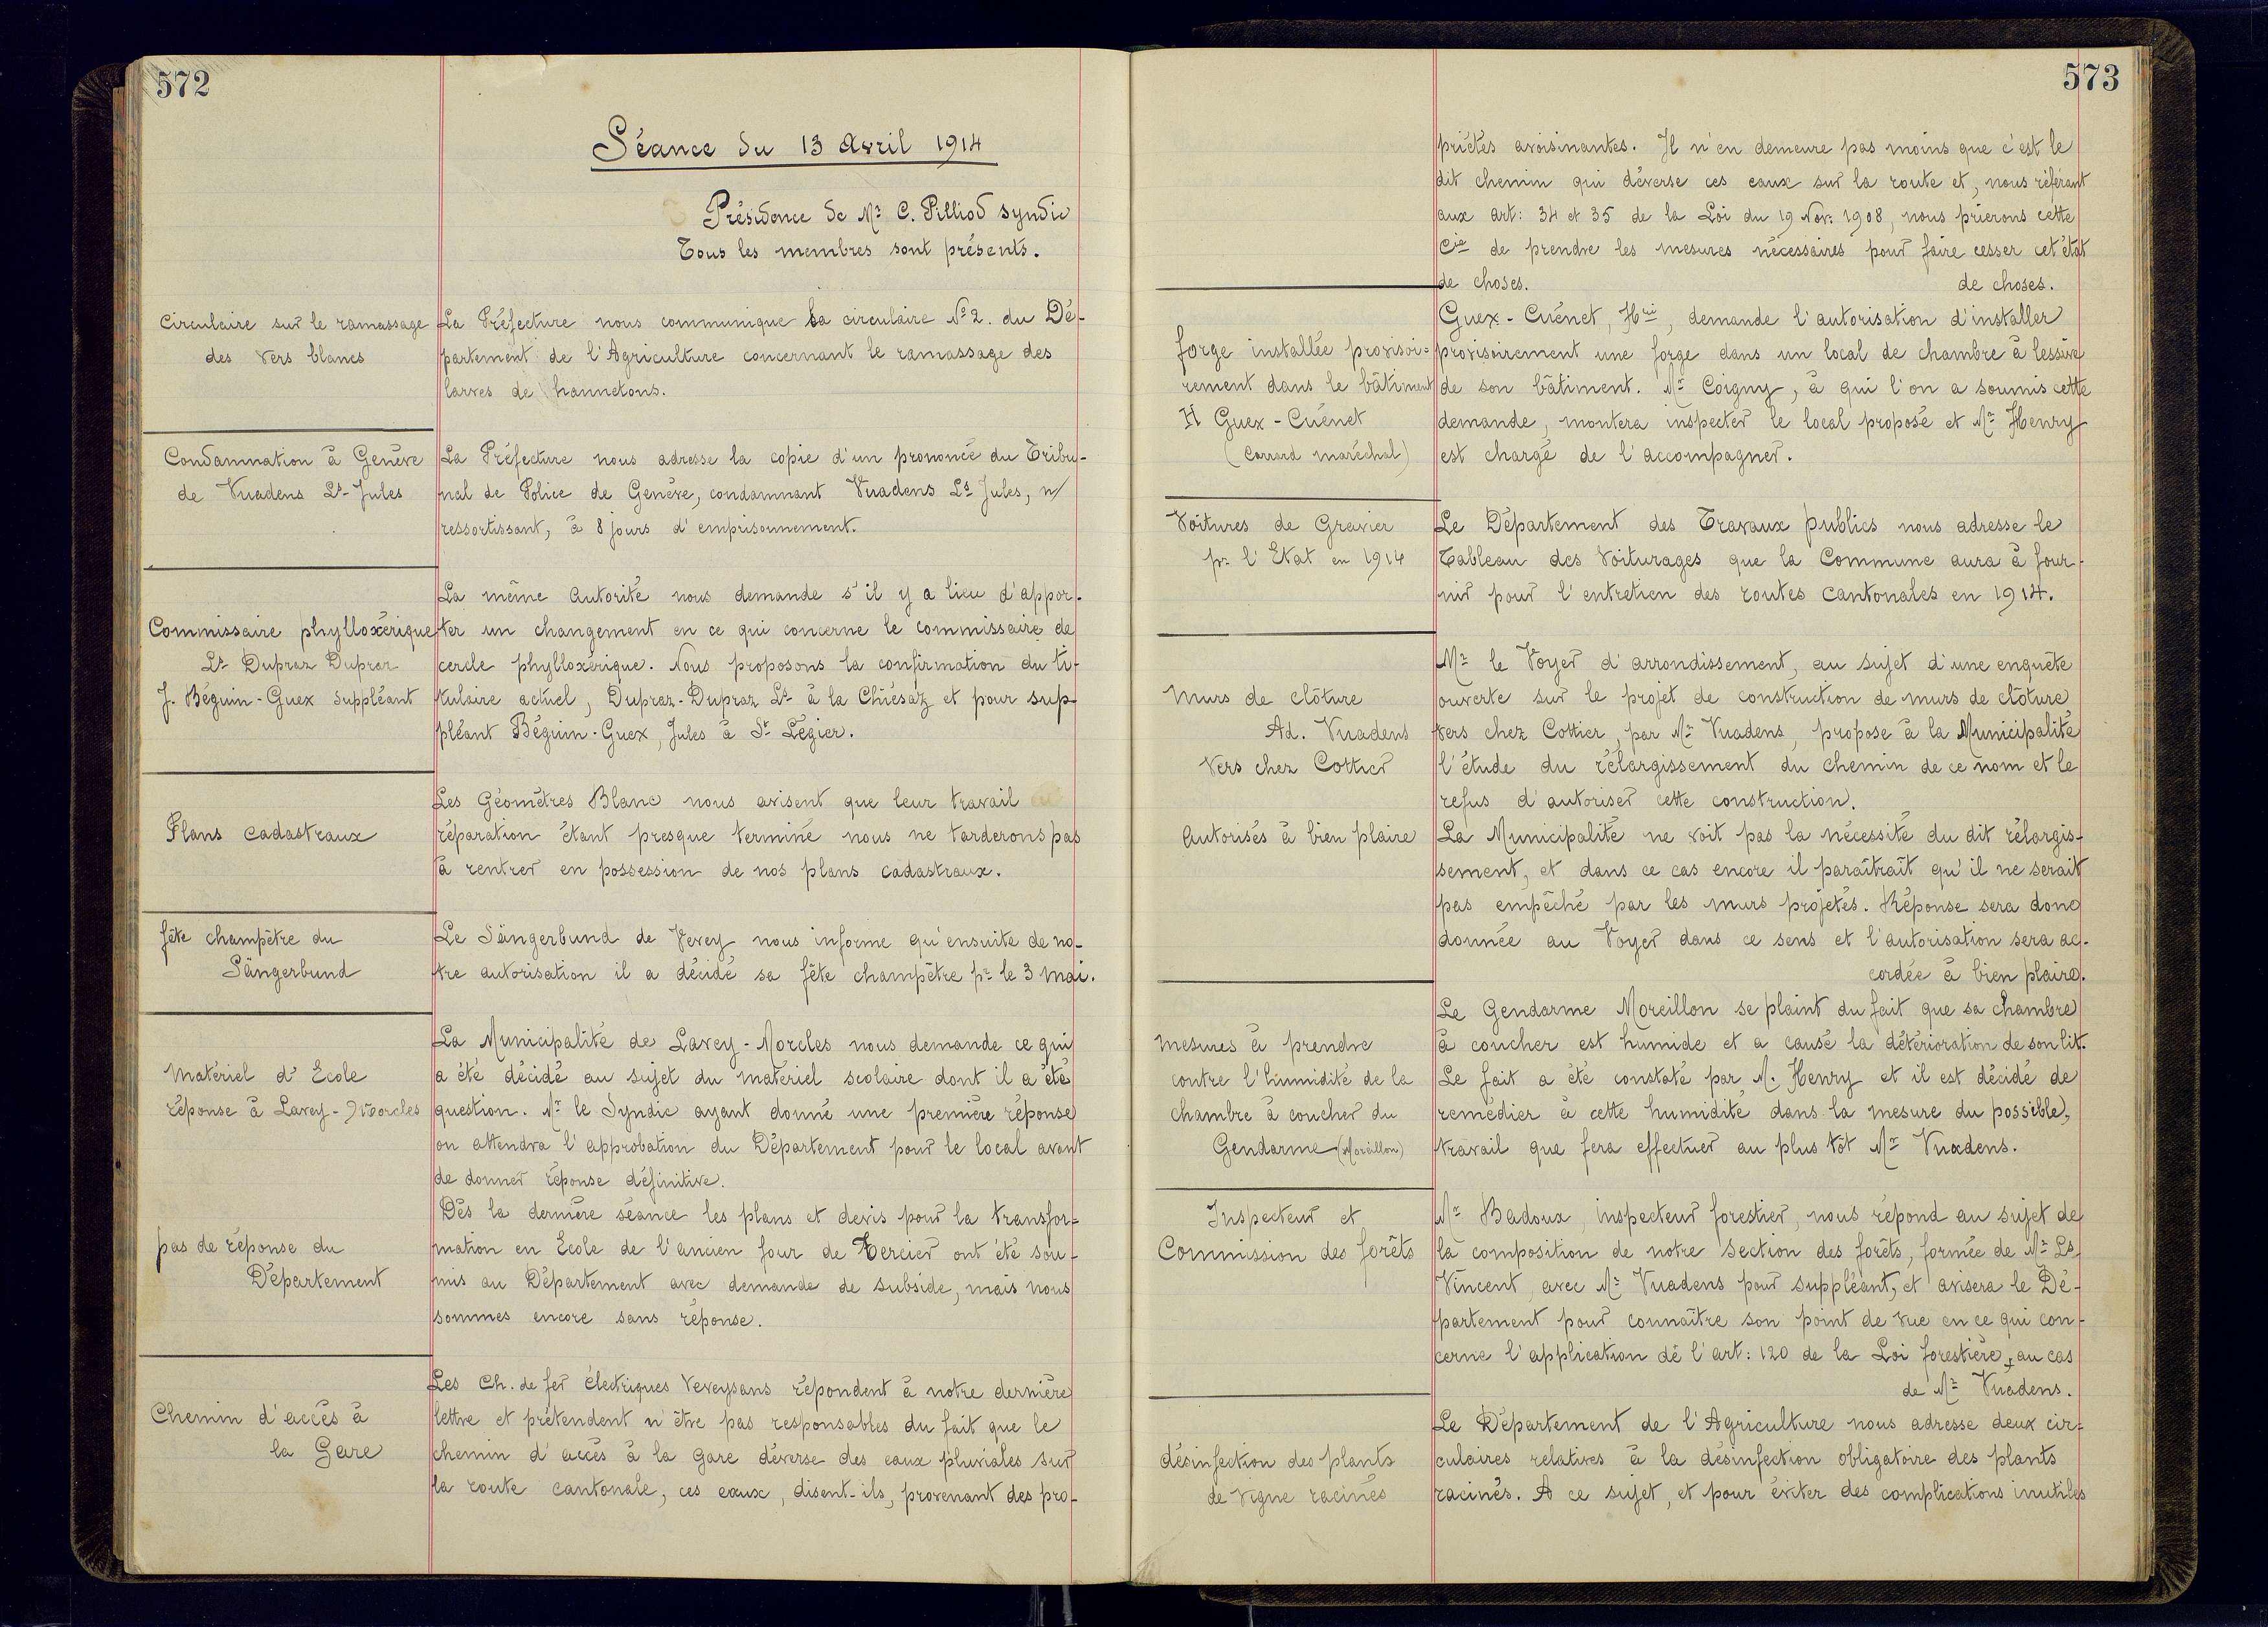 572
Séance du 13 Avril 1914
Présidence de Mr C. Pilliod syndic
Tous les membres sont présents.
Circulaire sur le ramassage
des vers blancs
La Préfecture nous communique la circulaire No 2. du Dé-
partement de l'Agriculture concernant le ramassage des
larves de hannetons.
Condamnation à Genève
de Vuadens Ls-Jules
La Préfecture nous adresse la copie d'un prononcé du Tribu-
nal de Police de Genève, condamnant Vuadens Ls Jules, n/
ressortissant, à 8 jours d'emprisonnement.
Commissaire phylloxérique
Ls Dupraz Dupraz
J. Béguin-Guex suppléant
La même autorité nous demande s'il y a lieu d'appor-
ter un changement en ce qui concerne le commissaire de
cercle phylloxérique. Nous proposons la confirmation du ti-
tulaire actuel, Dupraz-Dupraz Ls à la Chiésaz et pour sup-
pléant Béguin-Guex, Jules à St Légier.
Plans cadastraux
Les Géomètres Blanc nous avisent que leur travail
réparation étant presque terminé nous ne tarderons pas
à rentrer en possession de nos plans cadastraux.
fête champêtre du
Sängerbund
Le Sängerbund de Vevey nous informe qu'ensuite de no-
tre autorisation il a décidé sa fête champêtre pr le 3 mai.
Matériel d'Ecole
réponse à Lavey-Morcles
La Municipalité de Lavey-Morcles nous demande ce qui
a été décidé au sujet du matériel scolaire dont il a été
question. Mr le Syndic ayant donné une première réponse
on attendra l'approbation du Département pour le local avant
de donner réponse définitive.
pas de réponse du
Département
Dès la dernière séance les plans et devis pour la transfor-
mation en École de l'ancien four de Tercier ont été sou-
mis au Département avec demande de subside, mais nous
sommes encore sans réponse.
Chemin d'accès à
la Gare
Les Ch. de fer électriques Veveysans répondent à notre dernière
lettre et prétendent n'être pas responsables du fait que le
chemin d'accès à la gare déverse des eaux pluviales sur
la route cantonale, ces eaux, disent-ils, provenant des pro-
573
priétés avoisinantes. Il n'en demeure pas moins que c'est le
dit chemin qui déverse ces eaux sur la route et, nous référant
aux art: 34 et 35 de la Loi du 19 Nov: 1908, nous prierons cette
Cie de prendre les mesures nécessaires pour faire cesser cet état
de choses. de choses.
forge installée provisoi-
rement dans le bâtiment
H Guex-Cuénet
(Corrard maréchal)
Guex-Cuénet, Hri, demande l'autorisation d'installer
provisoirement une forge dans un local de chambre à lessive
de son bâtiment. Mr Coigny, à qui l'on a soumis cette
demande, montera inspecter le local proposé et Mr Henry
est chargé de l'accompagner.
Voitures de Gravier
pr l'Etat en 1914
Le Département des Travaux publics nous adresse le
Tableau des Voiturages que la Commune aura à four-
nir pour l'entretien des routes cantonales en 1914.
Murs de clôture
Ad. Vuadens
Vers chez Cottier
Mr le Voyer d'arrondissement, au sujet d'une enquête
ouverte sur le projet de construction de murs de clôture
vers chez Cottier, par Mr Vuadens, propose à la Municipalité
l'étude du rélargissement du chemin de ce nom et le
refus d'autoriser cette construction.
Autorisés à bien plaire
La Municipalité ne voit pas la nécessité du dit rélargis-
sement, et dans ce cas encore il paraîtrait qu'il ne serait
pas empêché par les murs projetés. Réponse sera donc
donnée au Voyer dans ce sens et l'autorisation sera ac-
cordée à bien plaire.
Mesures à prendre
contre l'humidité de la
chambre à coucher du
Gendarme (Moreillon)
Le Gendarme Moreillon se plaint du fait que sa chambre
à coucher est humide et a causé la détérioration de son lit.
Le fait a été constaté par M. Henry et il est décidé de
remédier à cette humidité dans la mesure du possible,
travail que fera effectuer au plus tôt Mr Vuadens.
Inspecteur et
Commission des forêts
Mr Badoux, inspecteur forestier, nous répond au sujet de
la composition de notre section des forêts, formée de Mr Ls
Vincent, avec Mr Vuadens pour suppléant, et avisera le Dé-
partement pour connaître son point de vue en ce qui con-
cerne l'application de l'art: 120 de la Loi forestière, au cas
de Mr Vuadens.
désinfection des plants
de vigne racinés
Le Département de l'Agriculture nous adresse deux cir-
culaires relatives à la désinfection obligatoire des plants
racinés. A ce sujet, et pour éviter des complications inutiles